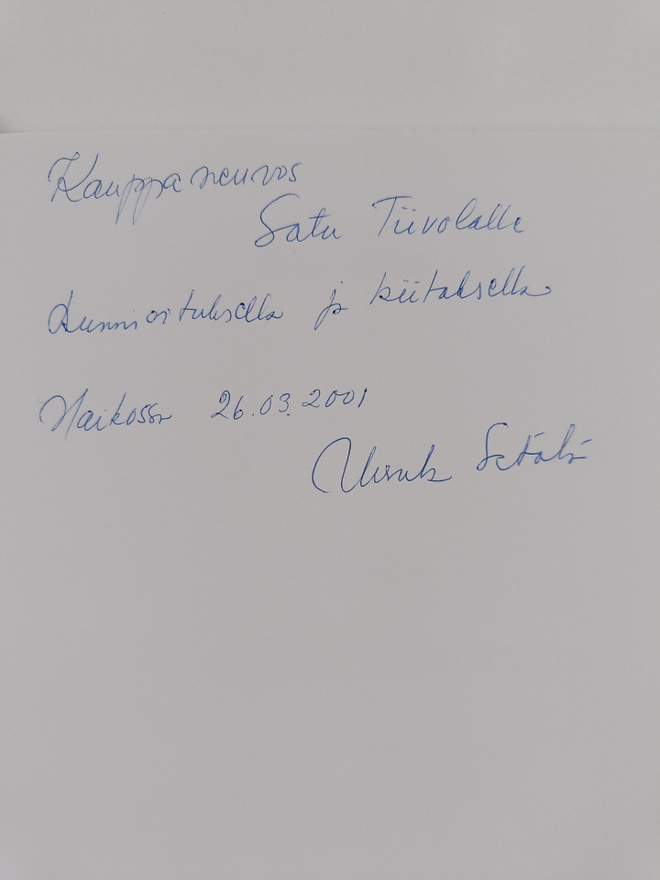 Kauppaneuvos
Satu Tiivolalle
kunnioituksella ja kiitoksella
Haikossa 26.03.2001
Setälä